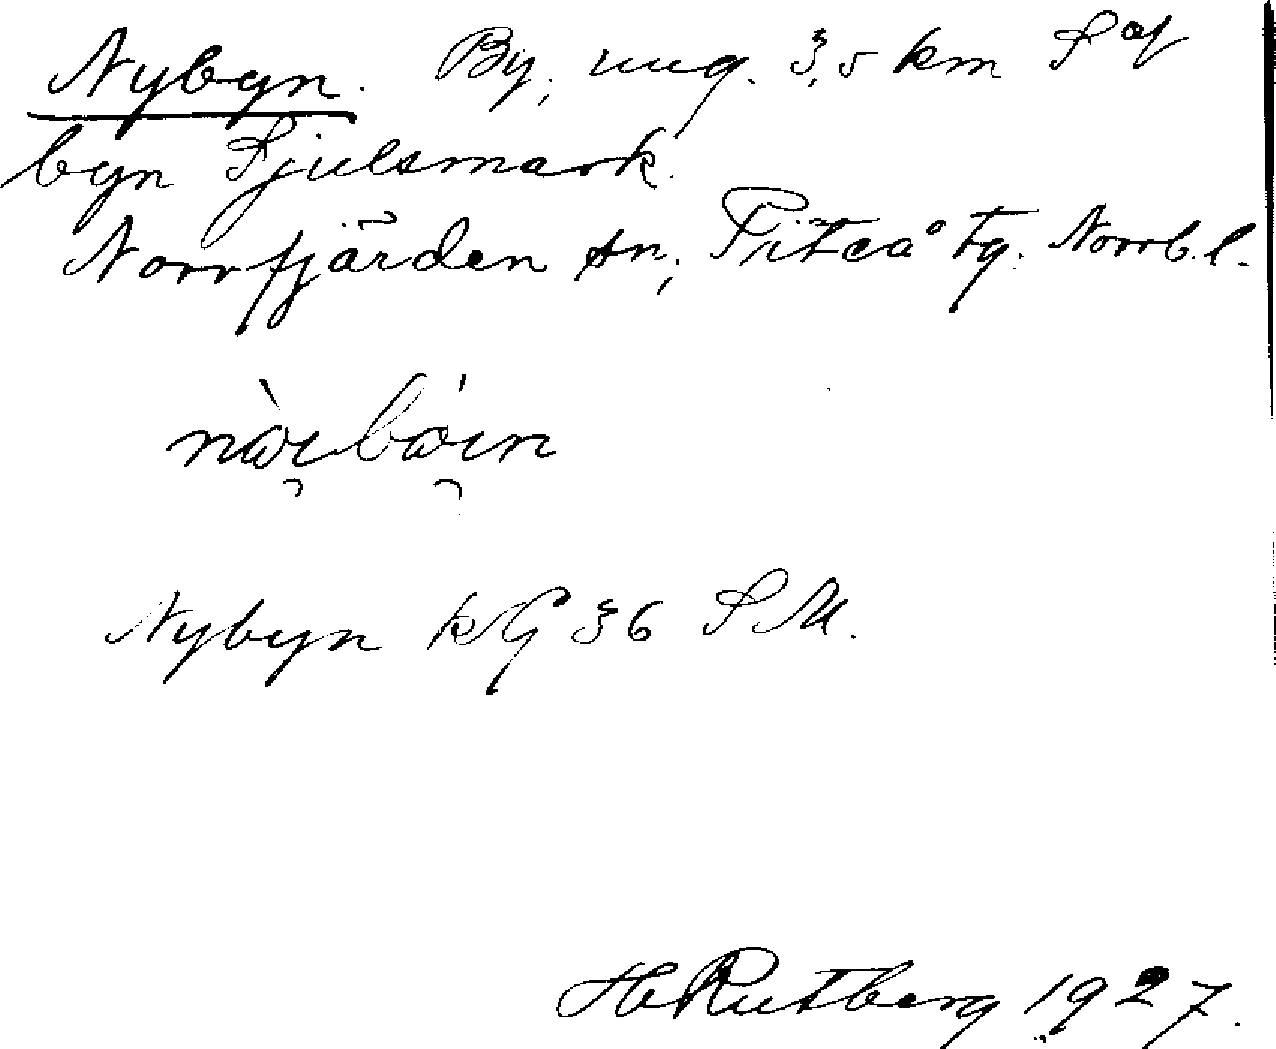 Nybyn. By, ung. 3,5 km S af
byn Sjulsmark.
Norrfjärden sn, Piteå tg. Norrb.l.
Nybyn kG 36 SM.
H Rutberg 1927.